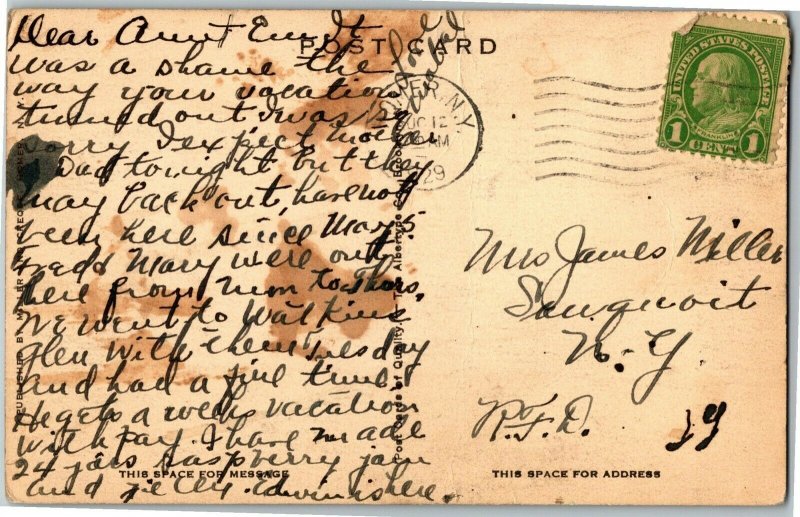 POST CARD
Dear Aunt Em. It
was a shame the
way your vacation
turned out. I was so
sorry. I expect mother
& Dad tonight but they
may back out, have not
been here since May 5
Fred & Mary were out
here from mon to Thurs.
We went to Watkins
Glen with them Tuesday
and had a fine time.
He gets a weeks vacation
with pay. I have made
24 jars raspberry jam
and jelly. Edwin is here.
Love
Mabel
THIS SPACE FOR MESSAGE
PUBLISHED BY
Post Cards of Quality. - The Albertype Co., Brooklyn
N.Y.
12
AM
29
UNITED STATES POSTAGE
FRANKLIN
1 CENT 1
Mrs James Miller
Sauquoit
N.Y.
R.F.D.
THIS SPACE FOR ADDRESS